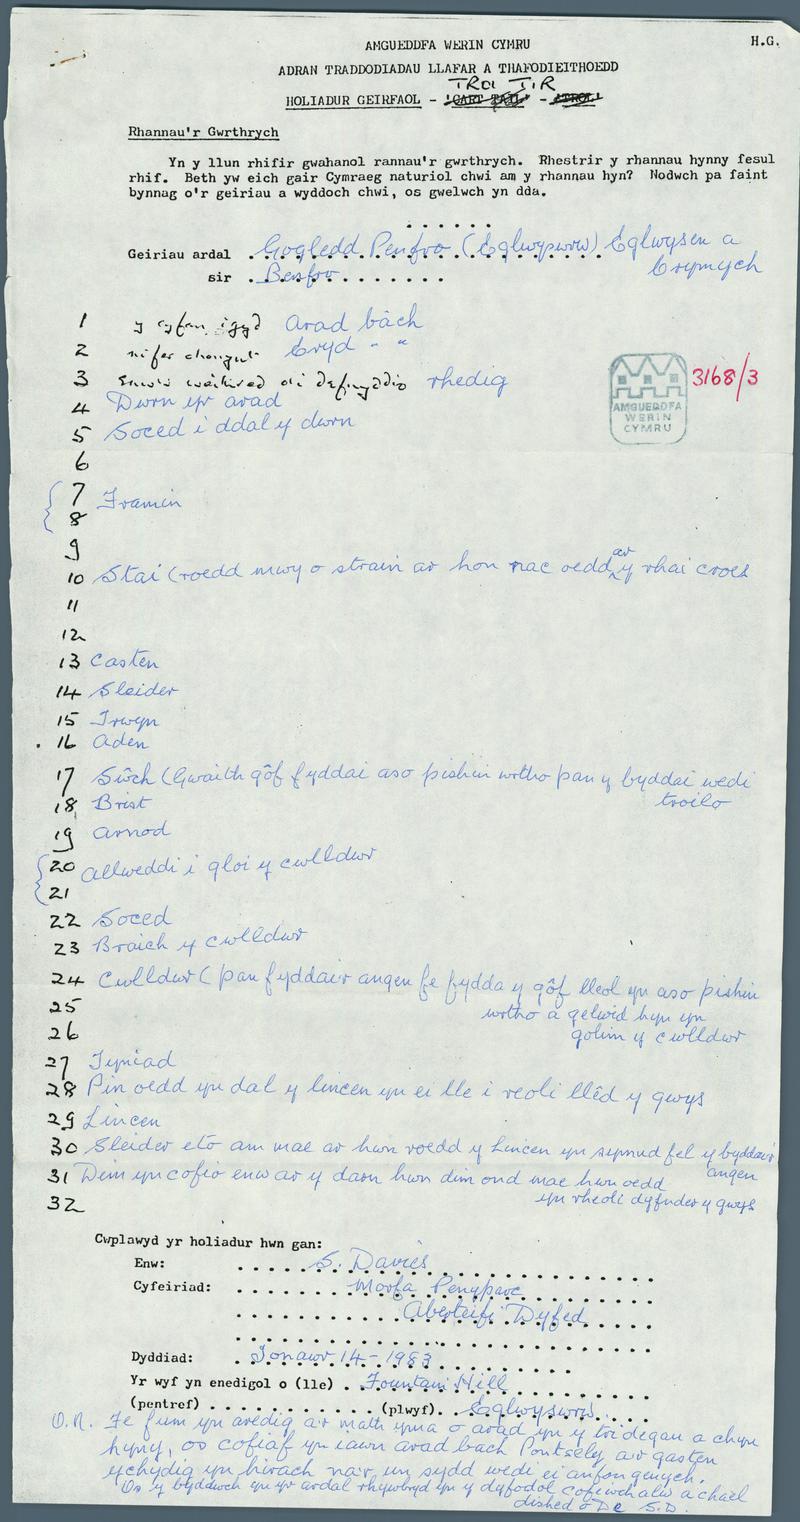 AMGUEDDFA WERIN CYMRU
H.G.
ADRAN TRADDODIADAU LLAFAR A THAFODIEITHOEDD
TROI TIR
HOLIADUR GEIRFAOL -
Rhannau'r Gwrthrych
Yn y llun rhifir gwahanol rannau'r gwrthrych. Rhestrir y rhannau hynny fesul
rhif. Beth yw eich gair Cymraeg naturiol chwi am y rhannau hyn? Nodwch pa faint
bynnag o'r geiriau a wyddoch chwi, os gwelwch yn dda.
Geiriau ardal Gogledd Penfro (Eglwyswrw) Eglwysen a
Crymych
sir Benfro
1 y cyfan i gyd Arad bach
2 Cryd " "
3 rhedig
3168/3
AMGUEDDFA
WERIN
CYMRU
4 Dwrn yr arad
5 Soced i ddal y dwrn
6
7 Framin
8
9
10 Stai (roedd mwy o strain ar hon nac oedd ar y rhai croes
11
12
13 Casten
14 Sleider
15 Trwyn
16 Aden
17 Sŵch (Gwaith gôf fyddai aso pishin wrtho pan y byddai wedi
treilo
18 Brist
19 Arnod
20 Allweddi i gloi y cwlldwr
21
22 Soced
23 Braich y cwlldwr
24 Cwlldwr (pan fyddair angen fe fydda y gôf lleol yn aso pishin
25 wrtho a gelwid hyn yn
26 golim y cwlldwr
27 Tyniad
28 Pin oedd yn dal y lincen yn ei lle i reoli llêd y gwys
29 Lincen
30 Sleider eto am mae ar hwn roedd y Lincen yn symud fel y byddair
angen
31 Dim yn cofio enw ar y darn hwn dim ond mae hwn oedd
yn rheoli dyfnder y gwys
32
Cwplawyd yr holiadur hwn gan:
Enw: S. Davies
Cyfeiriad: Morfa Penyparc
Aberteifi Dyfed
Dyddiad: Ionawr 14 - 1983
Yr wyf yn enedigol o (lle) Fountain Hill
(pentref) (plwyf) Eglwyswrw
O.N. Fe fum yn aredig a'r math yma o arad yn y tridegau a chyn
hyny, os cofiaf yn iawn arad bach Pontsely, a'r gasten
ychydig yn hirach na'r un sydd wedi ei anfon genych.
Os y byddwch yn yr ardal rhywbryd yn y dyfodol cofiwch alw a chael
dished o De S.D.